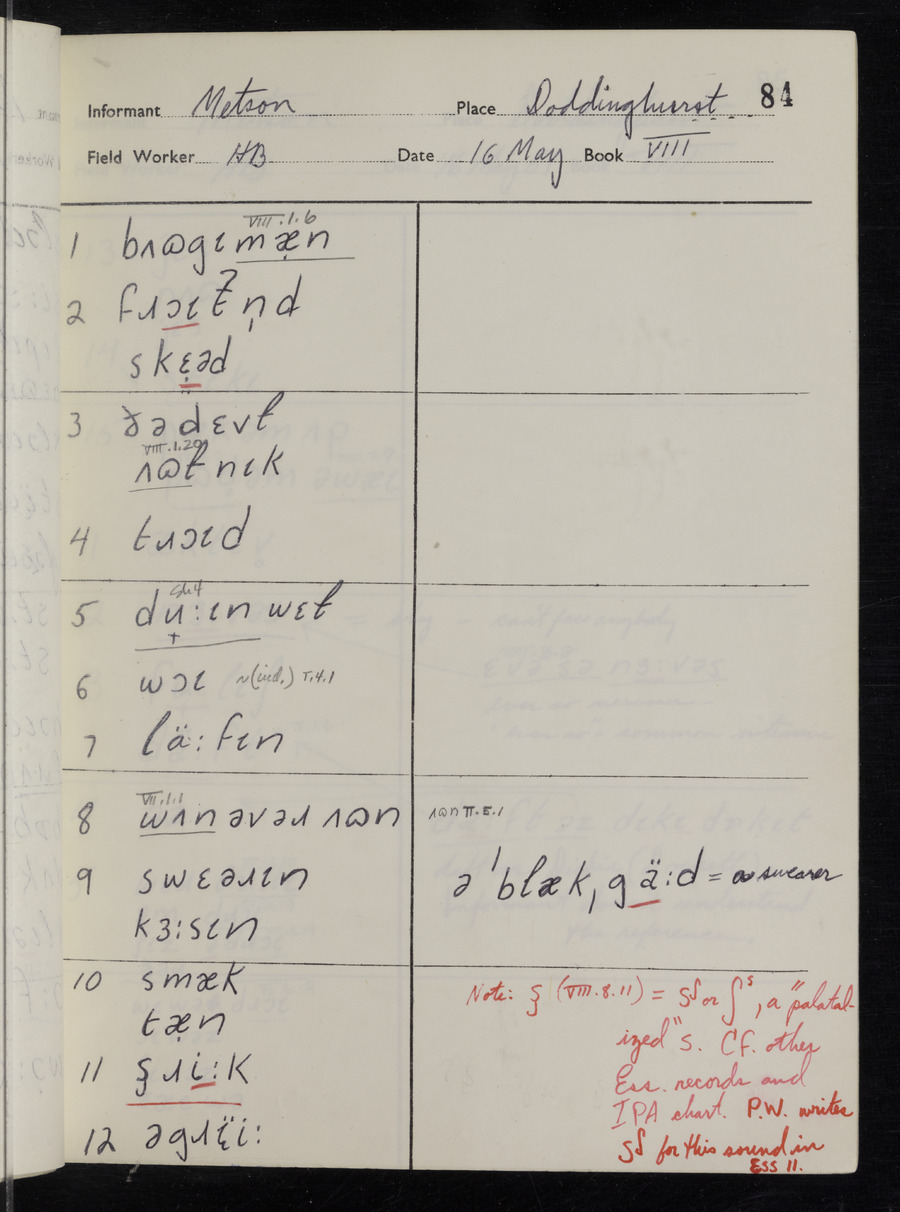 84
Informant Metson Place Doddinghurst
Field Worker HB Date 16 May Book VIII
VIII.1.6
1 bʌɷgɩmæ̣n
2 fɹɔɩtn̩d
skɛ̣əd
3 ðədɛvɫ
VIII.1.20
ʌɷɫnɩk
4 tɹɔɩd
5 du̟:ɩnwɛɫ
6 wɔɩ ~(ind.) T.4.1
7 lä:fɩn
VII.1.1
8 wʌnəvəɹʌɷn ʌɷn II.5.1
9 swɛəɹɩn ə ˈblækˌgä:d = a swearer
kɜ:sɩn
10 smæk
tæ̣n
11 ʂɹi:k
12 əgɹɛ̈i:
Note: ʂ (VIII.8.11) = sʃ or ʃs, a "palatal-
ized" s. Cf. other
Ess. records and
IPA chart. P.W. writes
sʃ for this sound in
Ess 11.